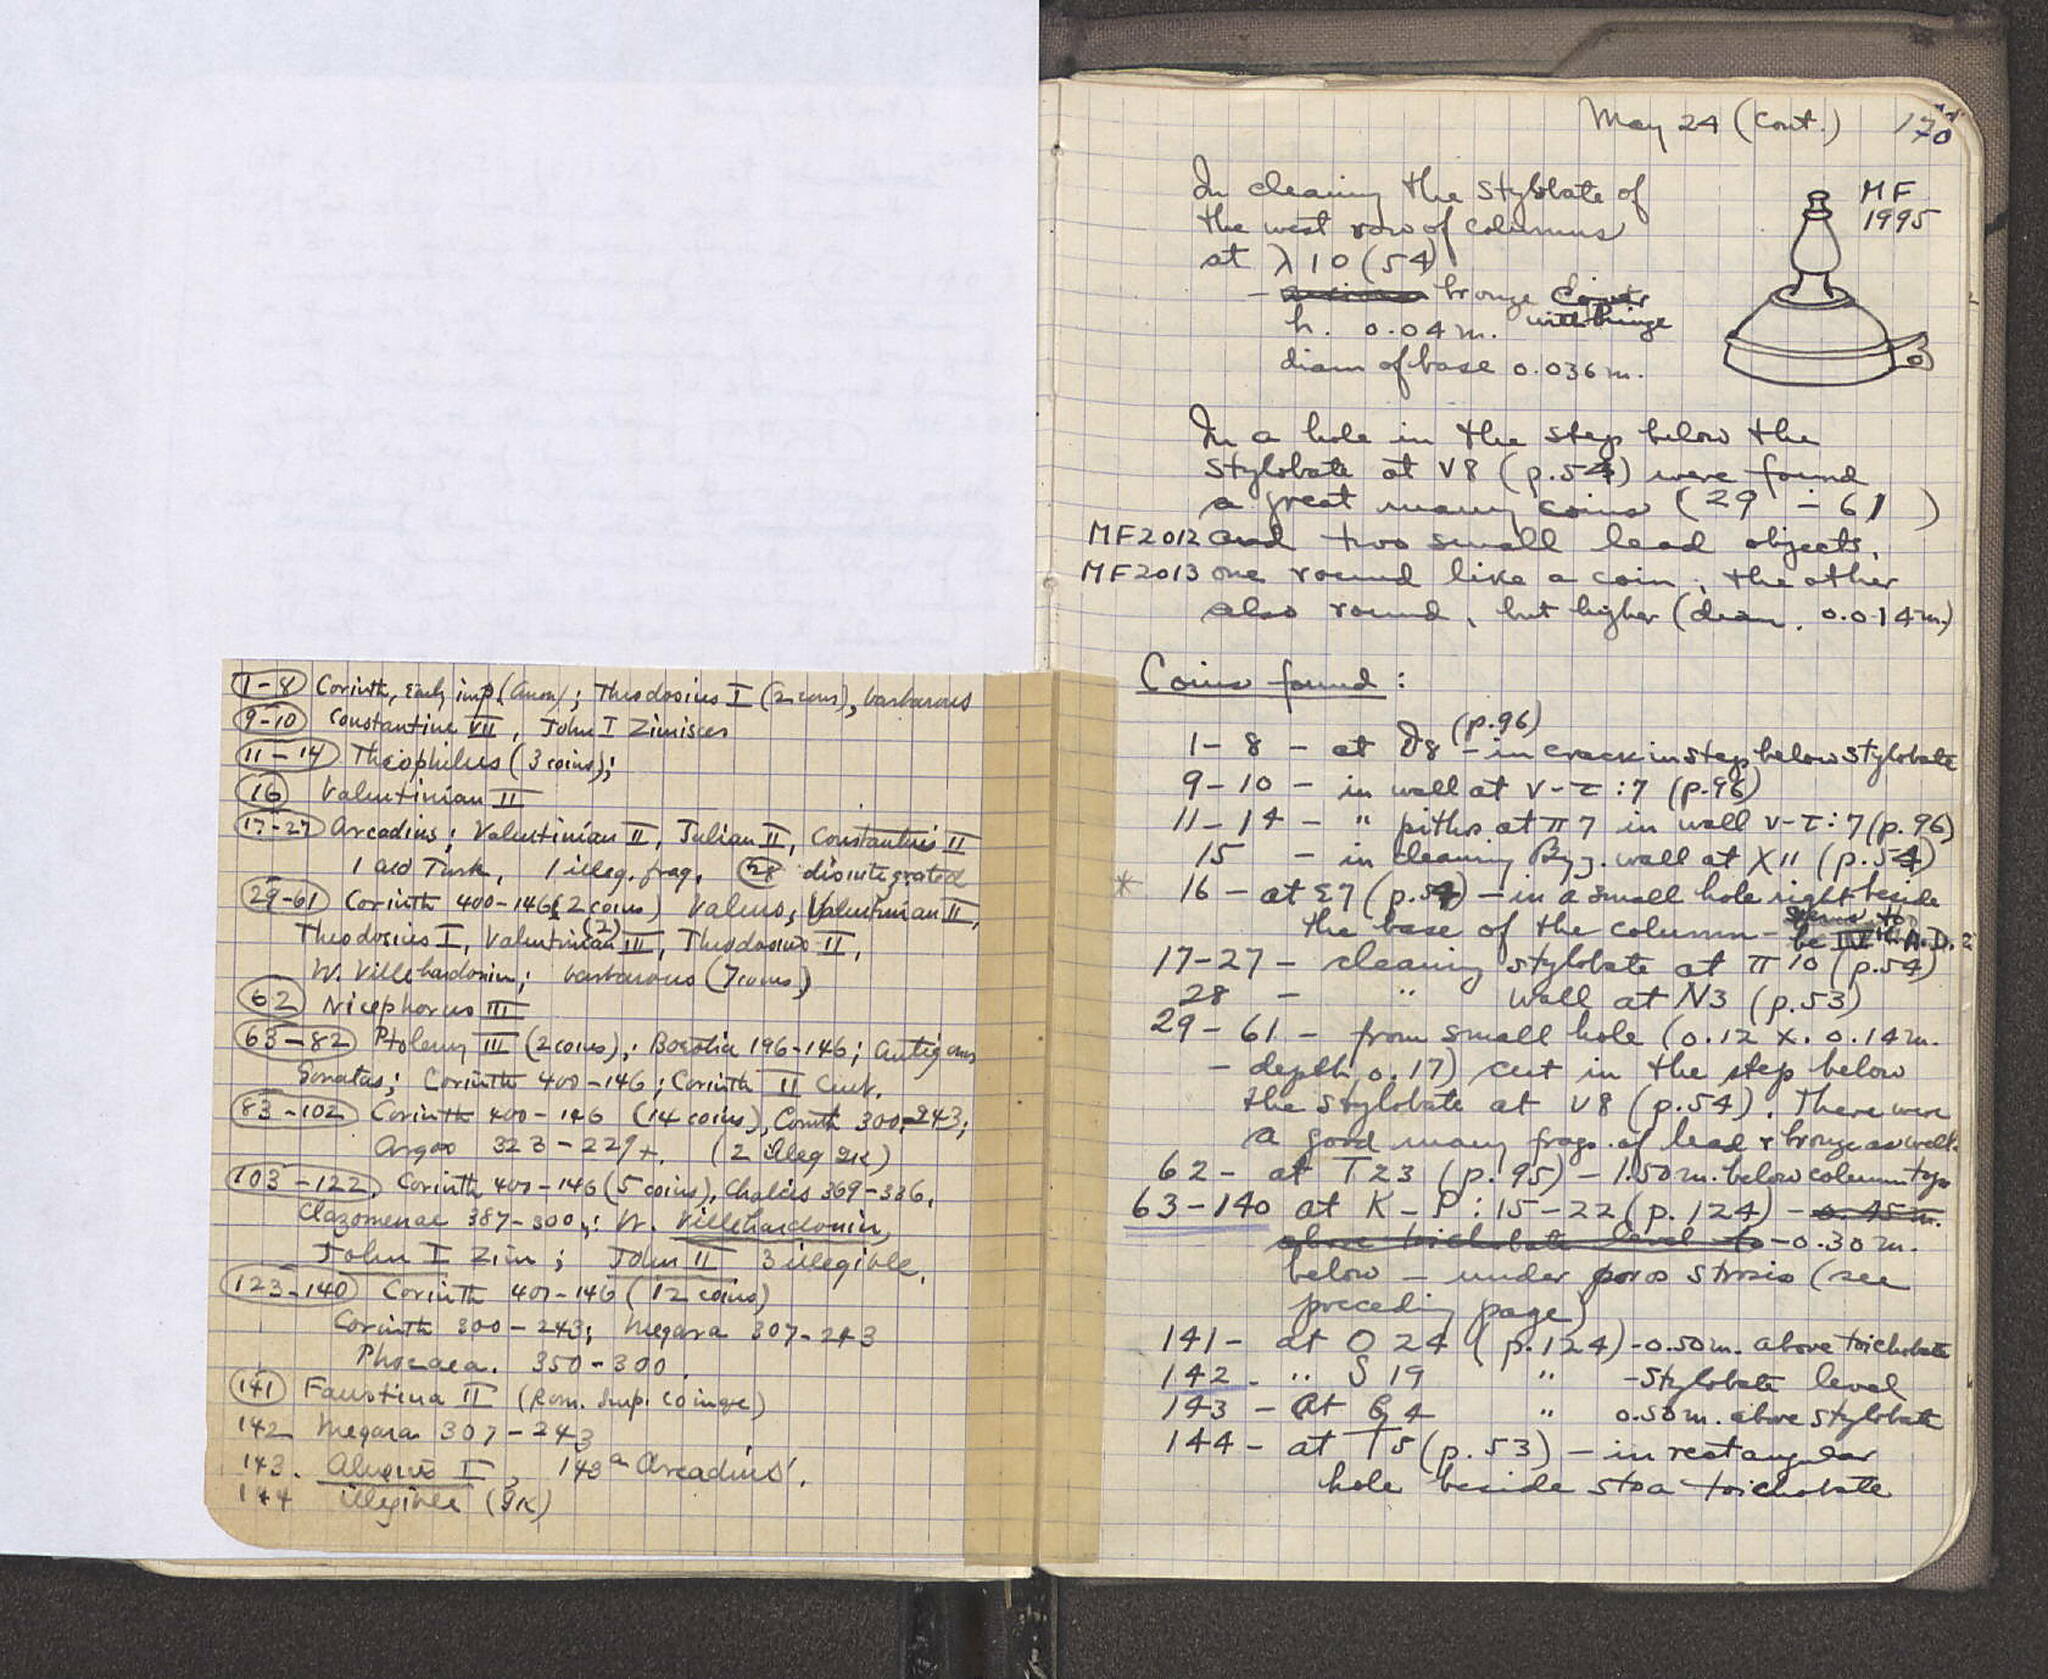 1-8 Corinth, Early imp (Anon); Theodosius I (2 coins), barbarous
9-10 Constantine VII, John I Zimisces
11-14 Theophilus (3 coins);
16 Valentinian II
17-27 Arcadius; Valentinian II, Julian II, Constantius II
1 old Turk, 1 illeg. frag. 28 disintegrated
29-61 Corinth 400-146 (2 coins) Valens, Valentinian II,
Theodosius I, Valentinian (2) III, Theodosius II,
W. Villehardouin; barbarous (7 coins)
62 Nicephorus III
63-82 Ptolemy III (2 coins); Boeotia 196-146; Antigonus
Gonatas; Corinth 400-146; Corinth II Cent.
83-102 Corinth 400-146 (14 coins), Corinth 300-243;
Argos 323-229+. (2 illeg gk)
103-122, Corinth 400-146 (5 coins), Chalcis 369-336,
Clazomenae 387-300; W. Villehardouin,
John I Zim; John II 3 illegible,
123-140 Corinth 400-146 (12 coins)
Corinth 300-243; Megara 307-243
Phocaea. 350-300
141 Faustina II (Rom. Imp. Coinage)
142 Megara 307-243
143. Alexius I, 143a Arcadius.
144 illegible (gk)
May 24 (Cont.) 170
In cleaning the stylobate of
the west row of columns
at λ 10 (54)
- bronze Cover
with hinge
h. 0.04 m.
diam of base 0.036 m.
MF
1995
In a hole in the step below the
stylobate at V8 (p.54) were found
a great many coins (29 - 61 )
MF2012 and two small lead objects,
MF2013 one round like a coin, the other
also round, but higher (diam. 0.014 m.)
Coins found:
1-8 - at 8 (p.96) - in crack in step below stylobate
9-10 - in wall at V-τ:7 (p.96)
11-14 - " pithos at π7 in wall V-τ:7 (p.96)
15 - in cleaning Byz. wall at X11 (p.54)
* 16 - at Σ7 (p.54) - in a small hole right beside
the base of the column - seems to
be IVth A.D.?
17-27 - cleaning stylobate at π 10 (p.54)
28 - " wall at N3 (p.53)
29-61 - from small hole (0.12 x 0.14 m.
- depth 0.17) cut in the step below
the stylobate at V8 (p.54). There were
a good many frags. of lead & bronze as well.
62 - at T23 (p.95) - 1.50 m. below column top
63-140 at K-P:15-22 (p.124) - 0.45 m.
above toichobate level to -0.30 m.
below - under poros strosis (see
preceding page)
141 - at O 24 (p.124) - 0.50 m. above toichobate
142 - " S 19 " - stylobate level
143 - At 4 " 0.50 m. above stylobate
144 - at T5 (p.53) - in rectangular
hole beside stoa toichobate